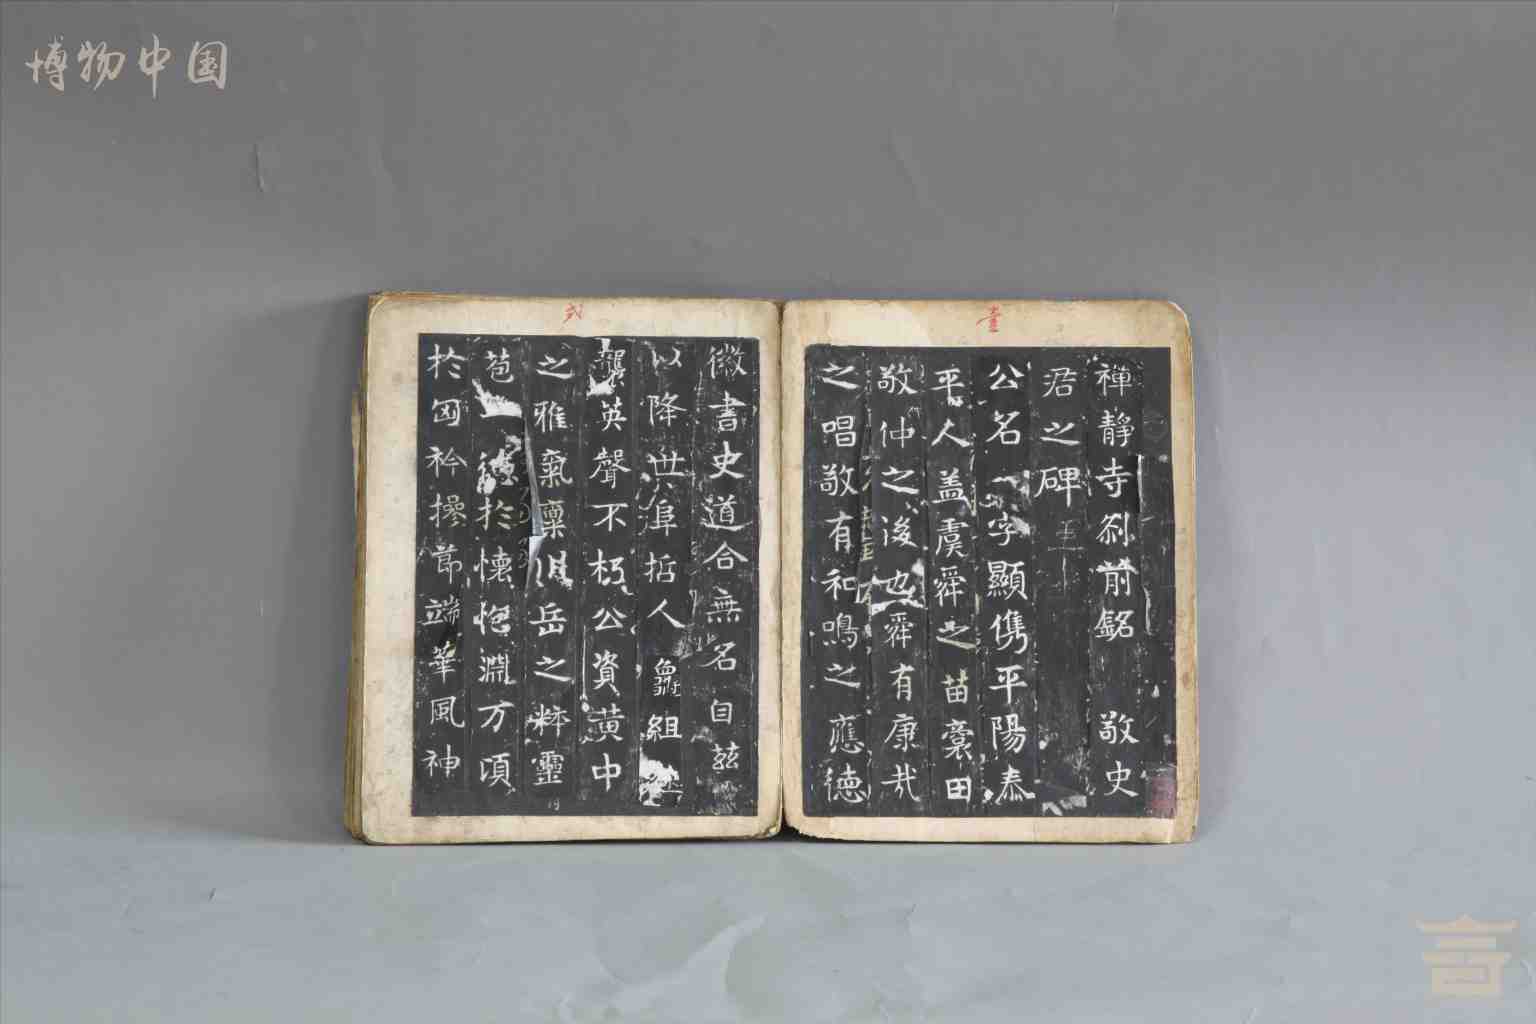 博物中国
壹
禅静寺刹前銘 敬史
君之碑
公名一字顯儁平陽泰
平人盖虞舜之苗裔田
敬仲之後也舜有康哉
之唱敬有和鳴之應德
弍
徽書史道合無名自兹
以降世阜哲人組
龔英聲不朽公資黄中
之雅氣稟岳之粹靈
苞一於懷悒淵万頃
於匈衿摻節端華風神